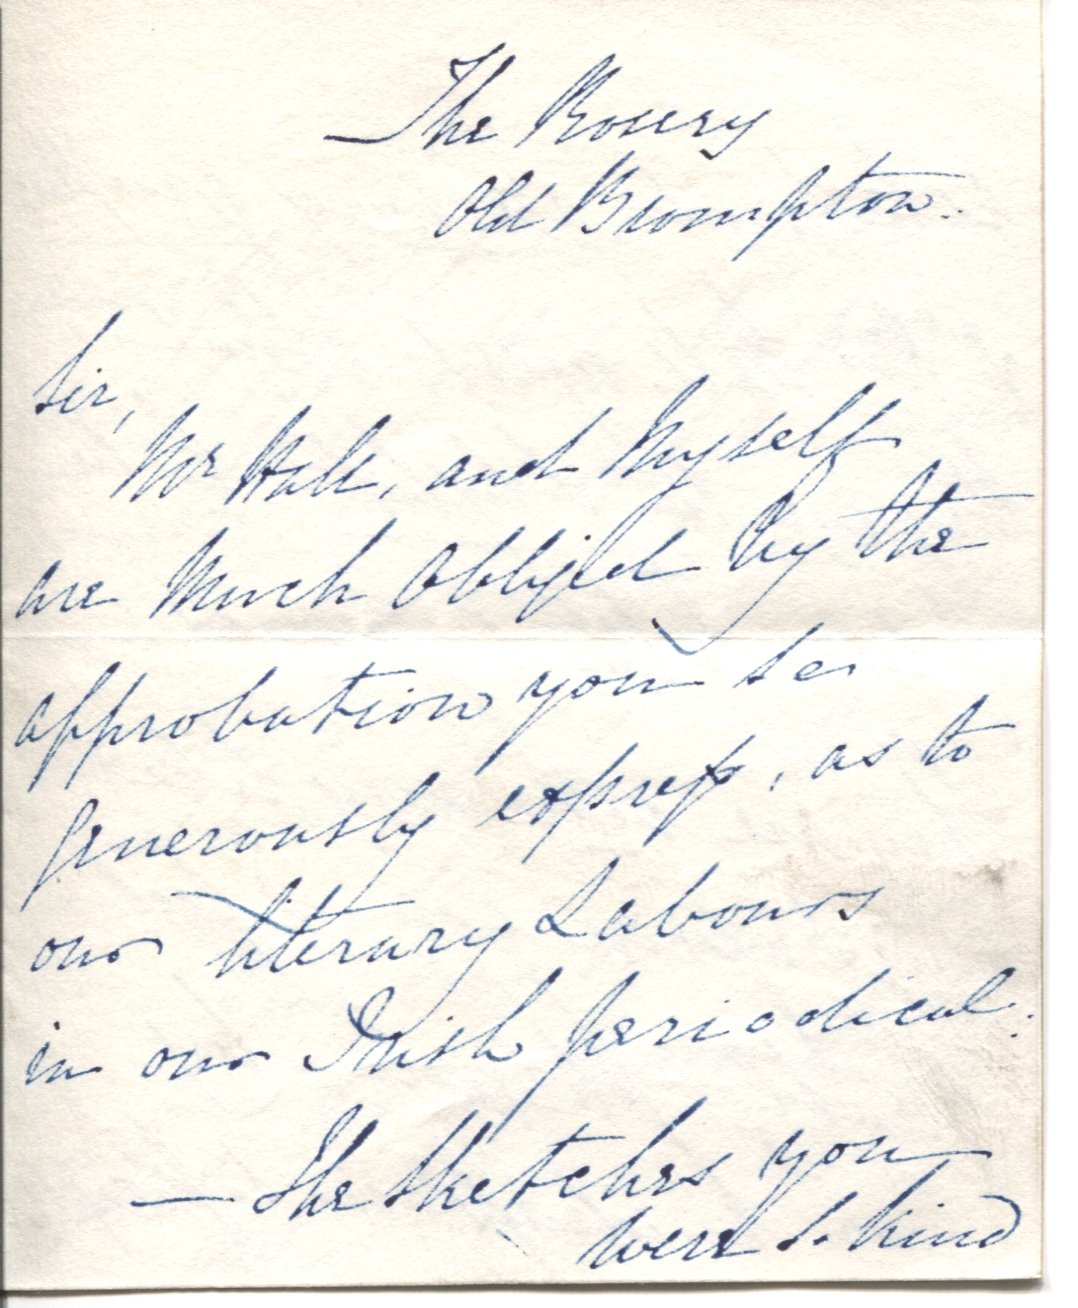 The Rosery
Old Brompton.
Sir,
Mr Hall, and Myself
are Much obliged by the
approbation you so
generously express, as to
our literary Labours
in our Irish periodical.
— The Sketches you
were so kind